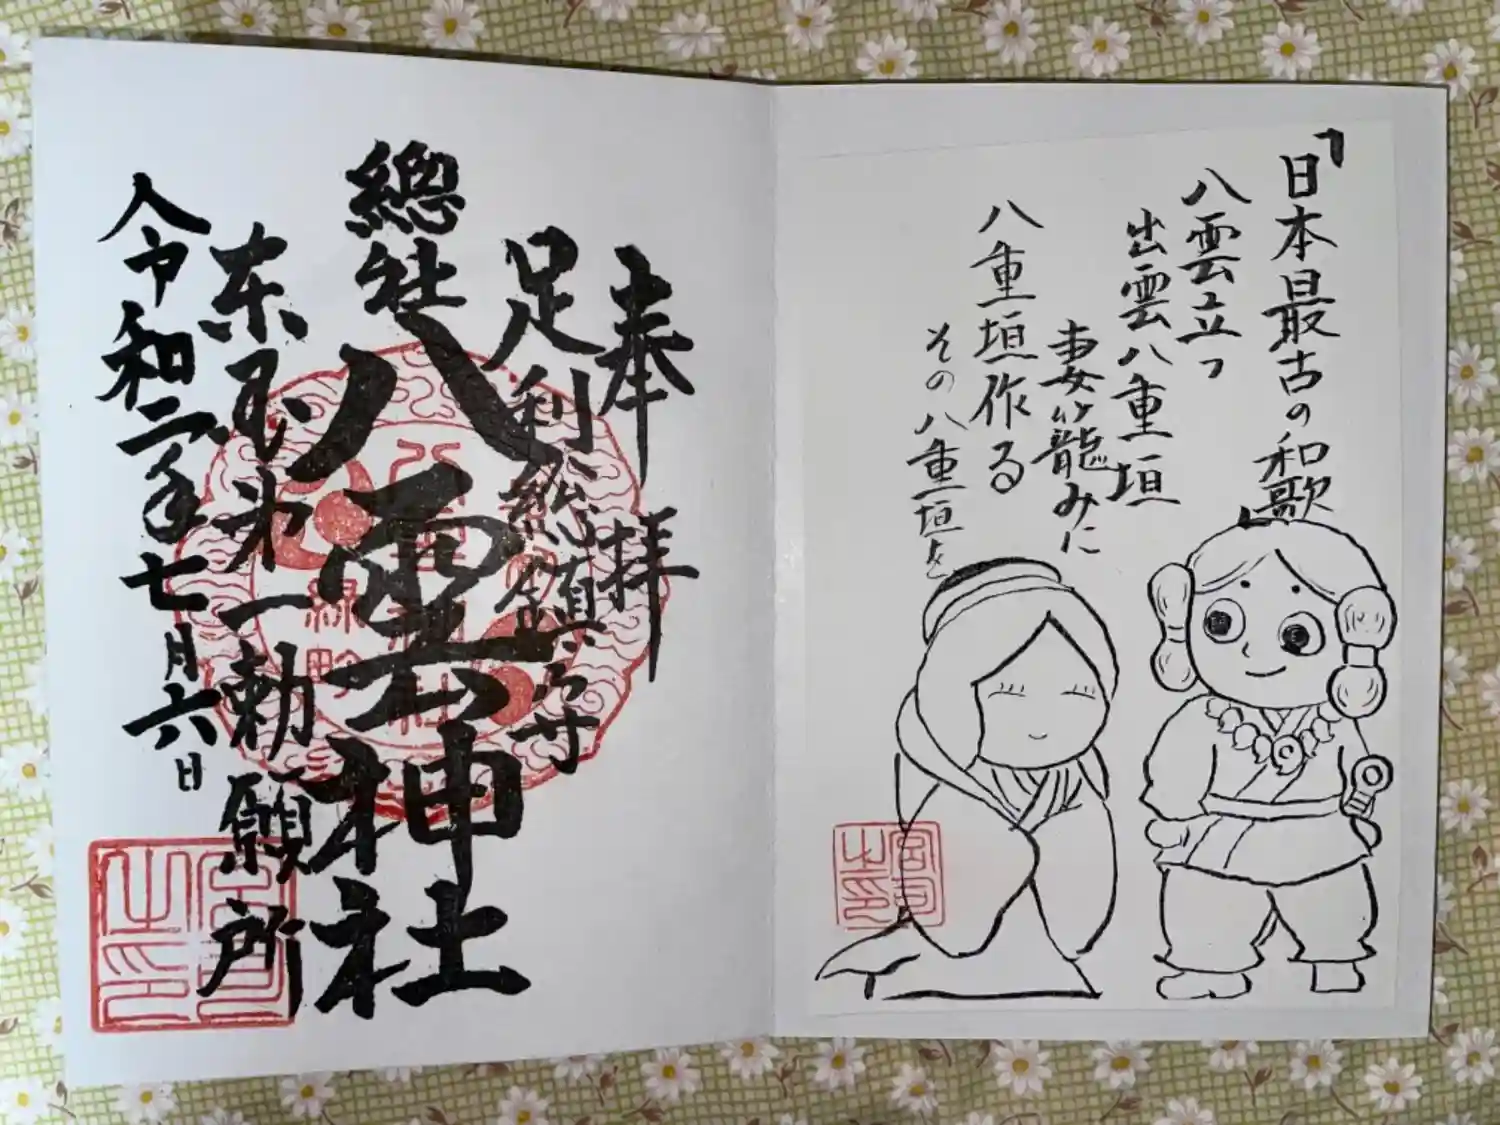 「日本最古の和歌」
八雲立つ
出雲八重垣
妻籠みに
八重垣作る
その八重垣を
宮司之印
奉拝
足利総鎮守
總社八雲神社
東国第一勅願所
令和二年七月六日
宮司之印